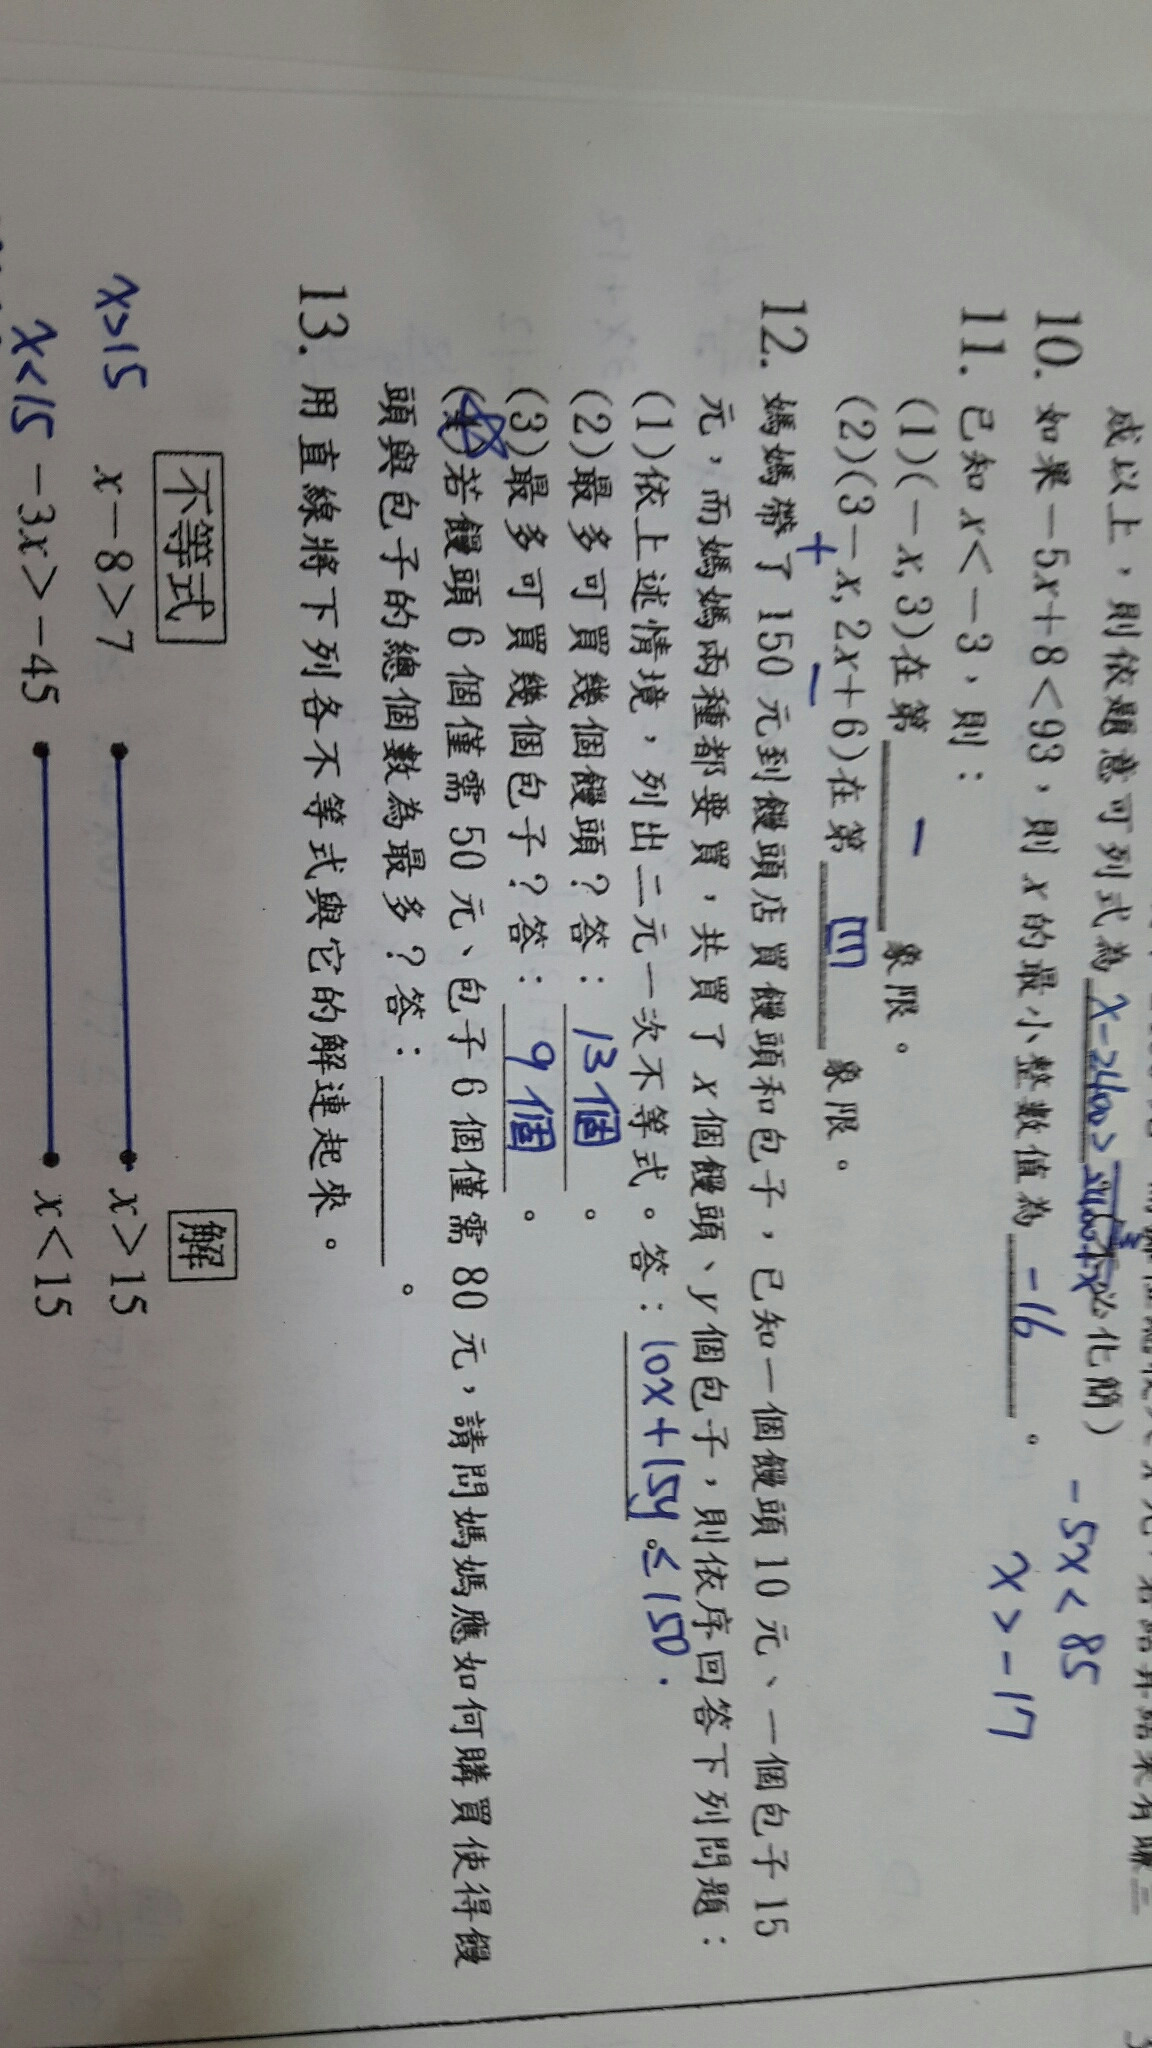 成以上，則依題意可列式為 x-2400>（不必化簡）
10. 如果－5x＋8＜93，則 x 的最小整數值為 -16 。
-5x < 85
x > -17
11. 已知 x＜－3，則：
(1)(－x, 3)在第 一 象限。
(2)(3－x, 2x＋6)在第 四 象限。
+ -
12. 媽媽帶了 150 元到饅頭店買饅頭和包子，已知一個饅頭 10 元、一個包子 15
元，而媽媽兩種都要買，共買了 x 個饅頭、y 個包子，則依序回答下列問題：
(1)依上述情境，列出二元一次不等式。答：10x+15y≤150.
(2)最多可買幾個饅頭？答：13個 。
(3)最多可買幾個包子？答：9個 。
(4)若饅頭 6 個僅需 50 元、包子 6 個僅需 80 元，請問媽媽應如何購買使得饅
頭與包子的總個數為最多？答： 。
13. 用直線將下列各不等式與它的解連起來。
不等式 解
x>15 x－8＞7 x＞15
x<15 －3x＞－45 x＜15